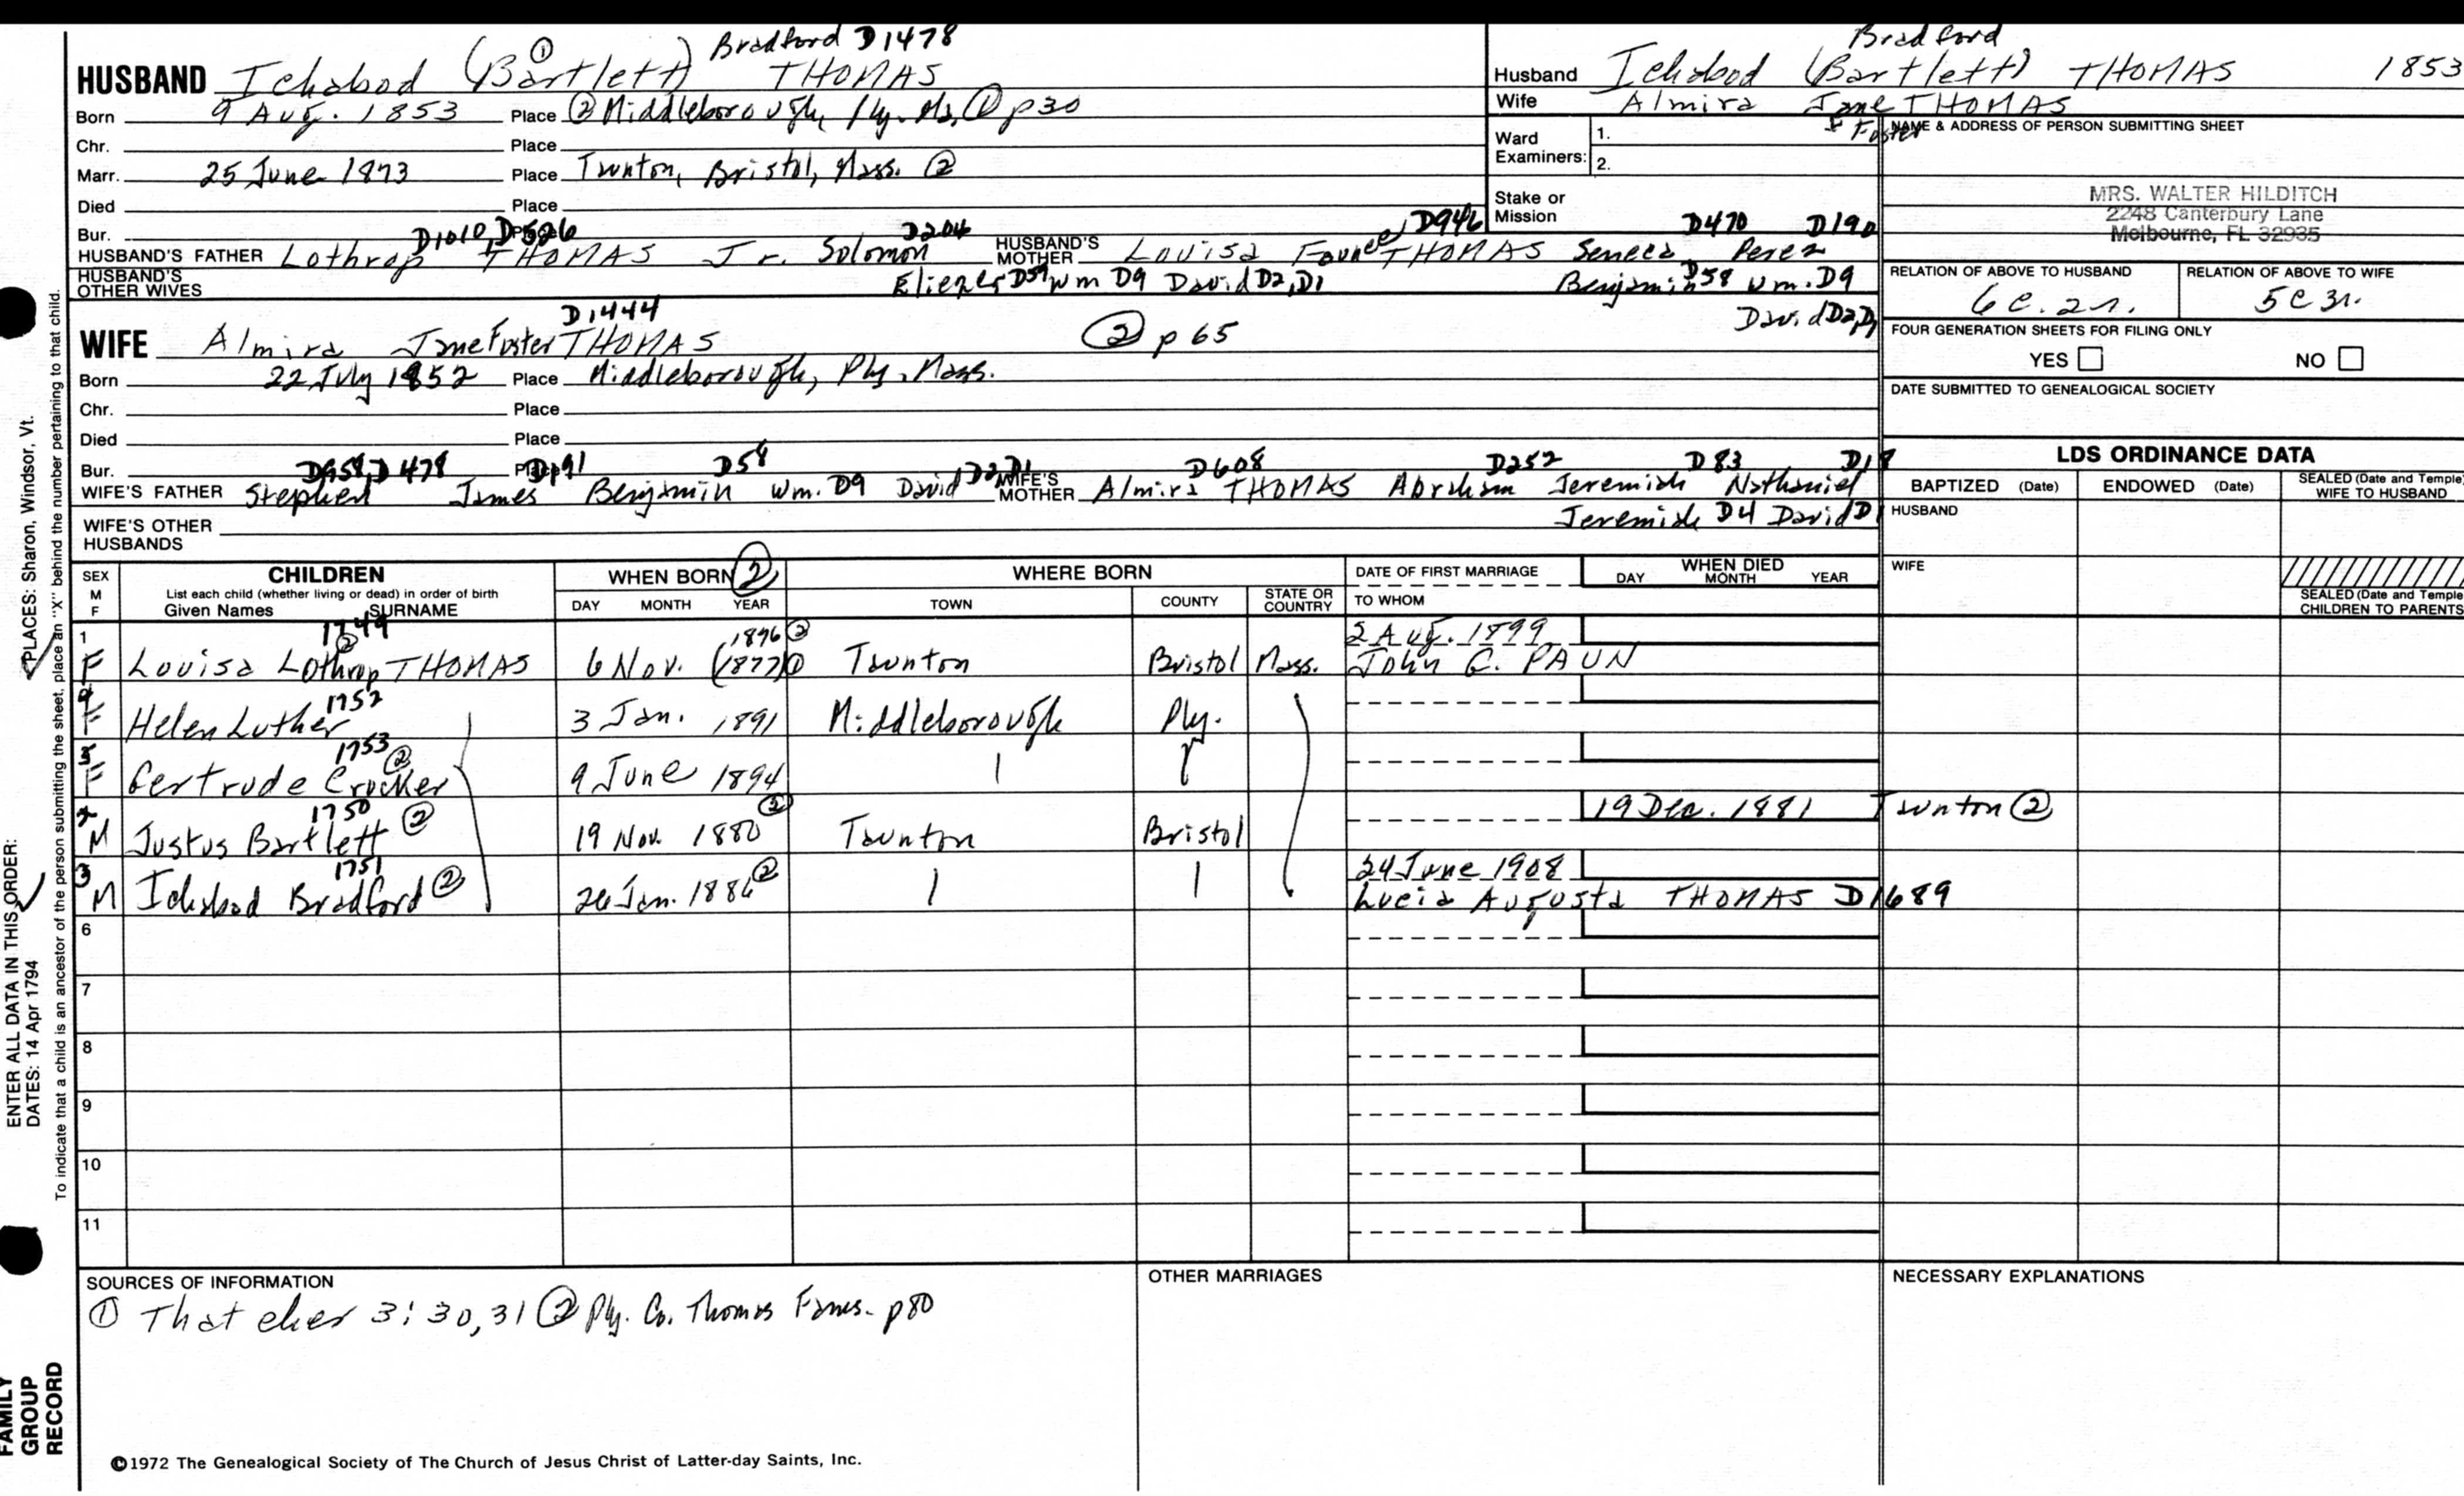 Bradford D1478
HUSBAND Ichabod (Bartlett) ① THOMAS
Born 9 Aug. 1853 Place ② Middleborough, Ply. Ms, ① p30
Chr. Place
Marr. 25 June 1873 Place Taunton, Bristol, Mass. ②
Died Place
Bur. Place
D1010, D526 D204 D946 D470 D190
HUSBAND'S FATHER Lothrop THOMAS Jr. Solomon HUSBAND'S MOTHER Louisa Faunce THOMAS Seneca Perez
HUSBAND'S OTHER WIVES Eliezer D59 Wm D9 David D2, D1 Benjamin D58 Wm. D9
David D2, D1
D1444
WIFE Almira Jane Foster THOMAS ② p 65
Born 22 July 1852 Place Middleborough, Ply. Mass.
Chr. Place
Died Place
Bur. Place
D958, D478 D191 D58 D608 D252 D83 D18
WIFE'S FATHER Stephen James Benjamin Wm. D9 David D2 D1 WIFE'S MOTHER Almira THOMAS Abraham Jeremiah Nathaniel
Jeremiah D4 David D1
WIFE'S OTHER HUSBANDS
Bradford
Husband Ichabod (Bartlett) THOMAS 1853
Wife Almira Jane THOMAS
Foster
Ward Examiners: 1.
2.
Stake or Mission
NAME & ADDRESS OF PERSON SUBMITTING SHEET
MRS. WALTER HILDITCH
2248 Canterbury Lane
Melbourne, FL 32935
RELATION OF ABOVE TO HUSBAND RELATION OF ABOVE TO WIFE
6 C. 2 r. 5 C 3 r.
FOUR GENERATION SHEETS FOR FILING ONLY
YES NO
DATE SUBMITTED TO GENEALOGICAL SOCIETY
LDS ORDINANCE DATA
BAPTIZED (Date) ENDOWED (Date) SEALED (Date and Temple) WIFE TO HUSBAND
HUSBAND
WIFE
SEALED (Date and Temple) CHILDREN TO PARENTS
SEX M F CHILDREN List each child (whether living or dead) in order of birth Given Names SURNAME
WHEN BORN ② DAY MONTH YEAR
WHERE BORN TOWN COUNTY STATE OR COUNTRY
DATE OF FIRST MARRIAGE TO WHOM
WHEN DIED DAY MONTH YEAR
1749 ② 1876 ② 2 Aug. 1899
1 F Louisa Lothrop THOMAS 6 Nov. (1877) ① Taunton Bristol Mass. John G. PAUN
1752
4 F Helen Luther 3 Jan. 1891 Middleborough Ply.
1753 ②
5 F Gertrude Crocker 9 June 1894
1750 ② 19 Dec. 1881 Taunton ②
2 M Justus Bartlett 19 Nov. 1880 ② Taunton Bristol
1751 24 June 1908
3 M Ichabod Bradford ② 26 Jan. 1886 ② Lucia Augusta THOMAS D1689
6
7
8
9
10
11
SOURCES OF INFORMATION
① Thatcher 3: 30, 31 ② Ply. Co. Thomas Fams. p80
OTHER MARRIAGES
NECESSARY EXPLANATIONS
©1972 The Genealogical Society of The Church of Jesus Christ of Latter-day Saints, Inc.
PLACES: Sharon, Windsor, Vt.
ENTER ALL DATA IN THIS ORDER:
DATES: 14 Apr 1794
To indicate that a child is an ancestor of the person submitting the sheet, place an "X" behind the number pertaining to that child.
FAMILY
GROUP
RECORD